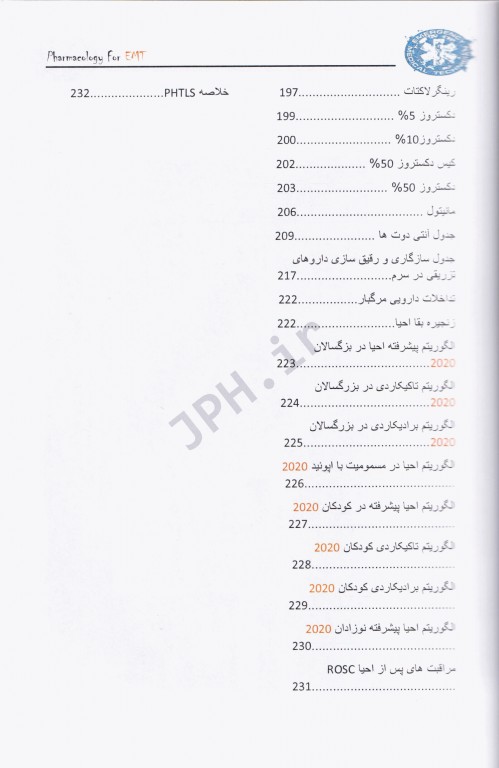 Pharmacology For EMT
EMERGENCY
MEDICAL TECHNICIAN
رینگرلاکتات ............................197
دکستروز 5% ...........................199
دکستروز10% ..........................200
کیس دکستروز 50% ...................202
دکستروز 50% .........................203
مانیتول ...................................206
جدول آنتی دوت ها ......................209
جدول سازگاری و رقیق سازی داروهای
تزریقی در سرم..........................217
تداخلات دارویی مرگبار.................222
زنجیره بقا احیا...........................222
الگوریتم پیشرفته احیا در بزگسالان
2020.....................................223
الگوریتم تاکیکاردی در بزرگسالان
2020....................................224
الگوریتم برادیکاردی در بزرگسالان
2020.....................................225
الگوریتم احیا در مسمومیت با اپوئید 2020
.........................................226
الگوریتم احیا پیشرفته در کودکان 2020
.........................................227
الگوریتم تاکیکاردی کودکان 2020
.........................................228
الگوریتم برادیکاردی کودکان 2020
.........................................229
الگوریتم احیا پیشرفته نوزادان 2020
.........................................230
مراقبت های پس از احیا ROSC
........................................231
خلاصه PHTLS.....................232
JPH.ir